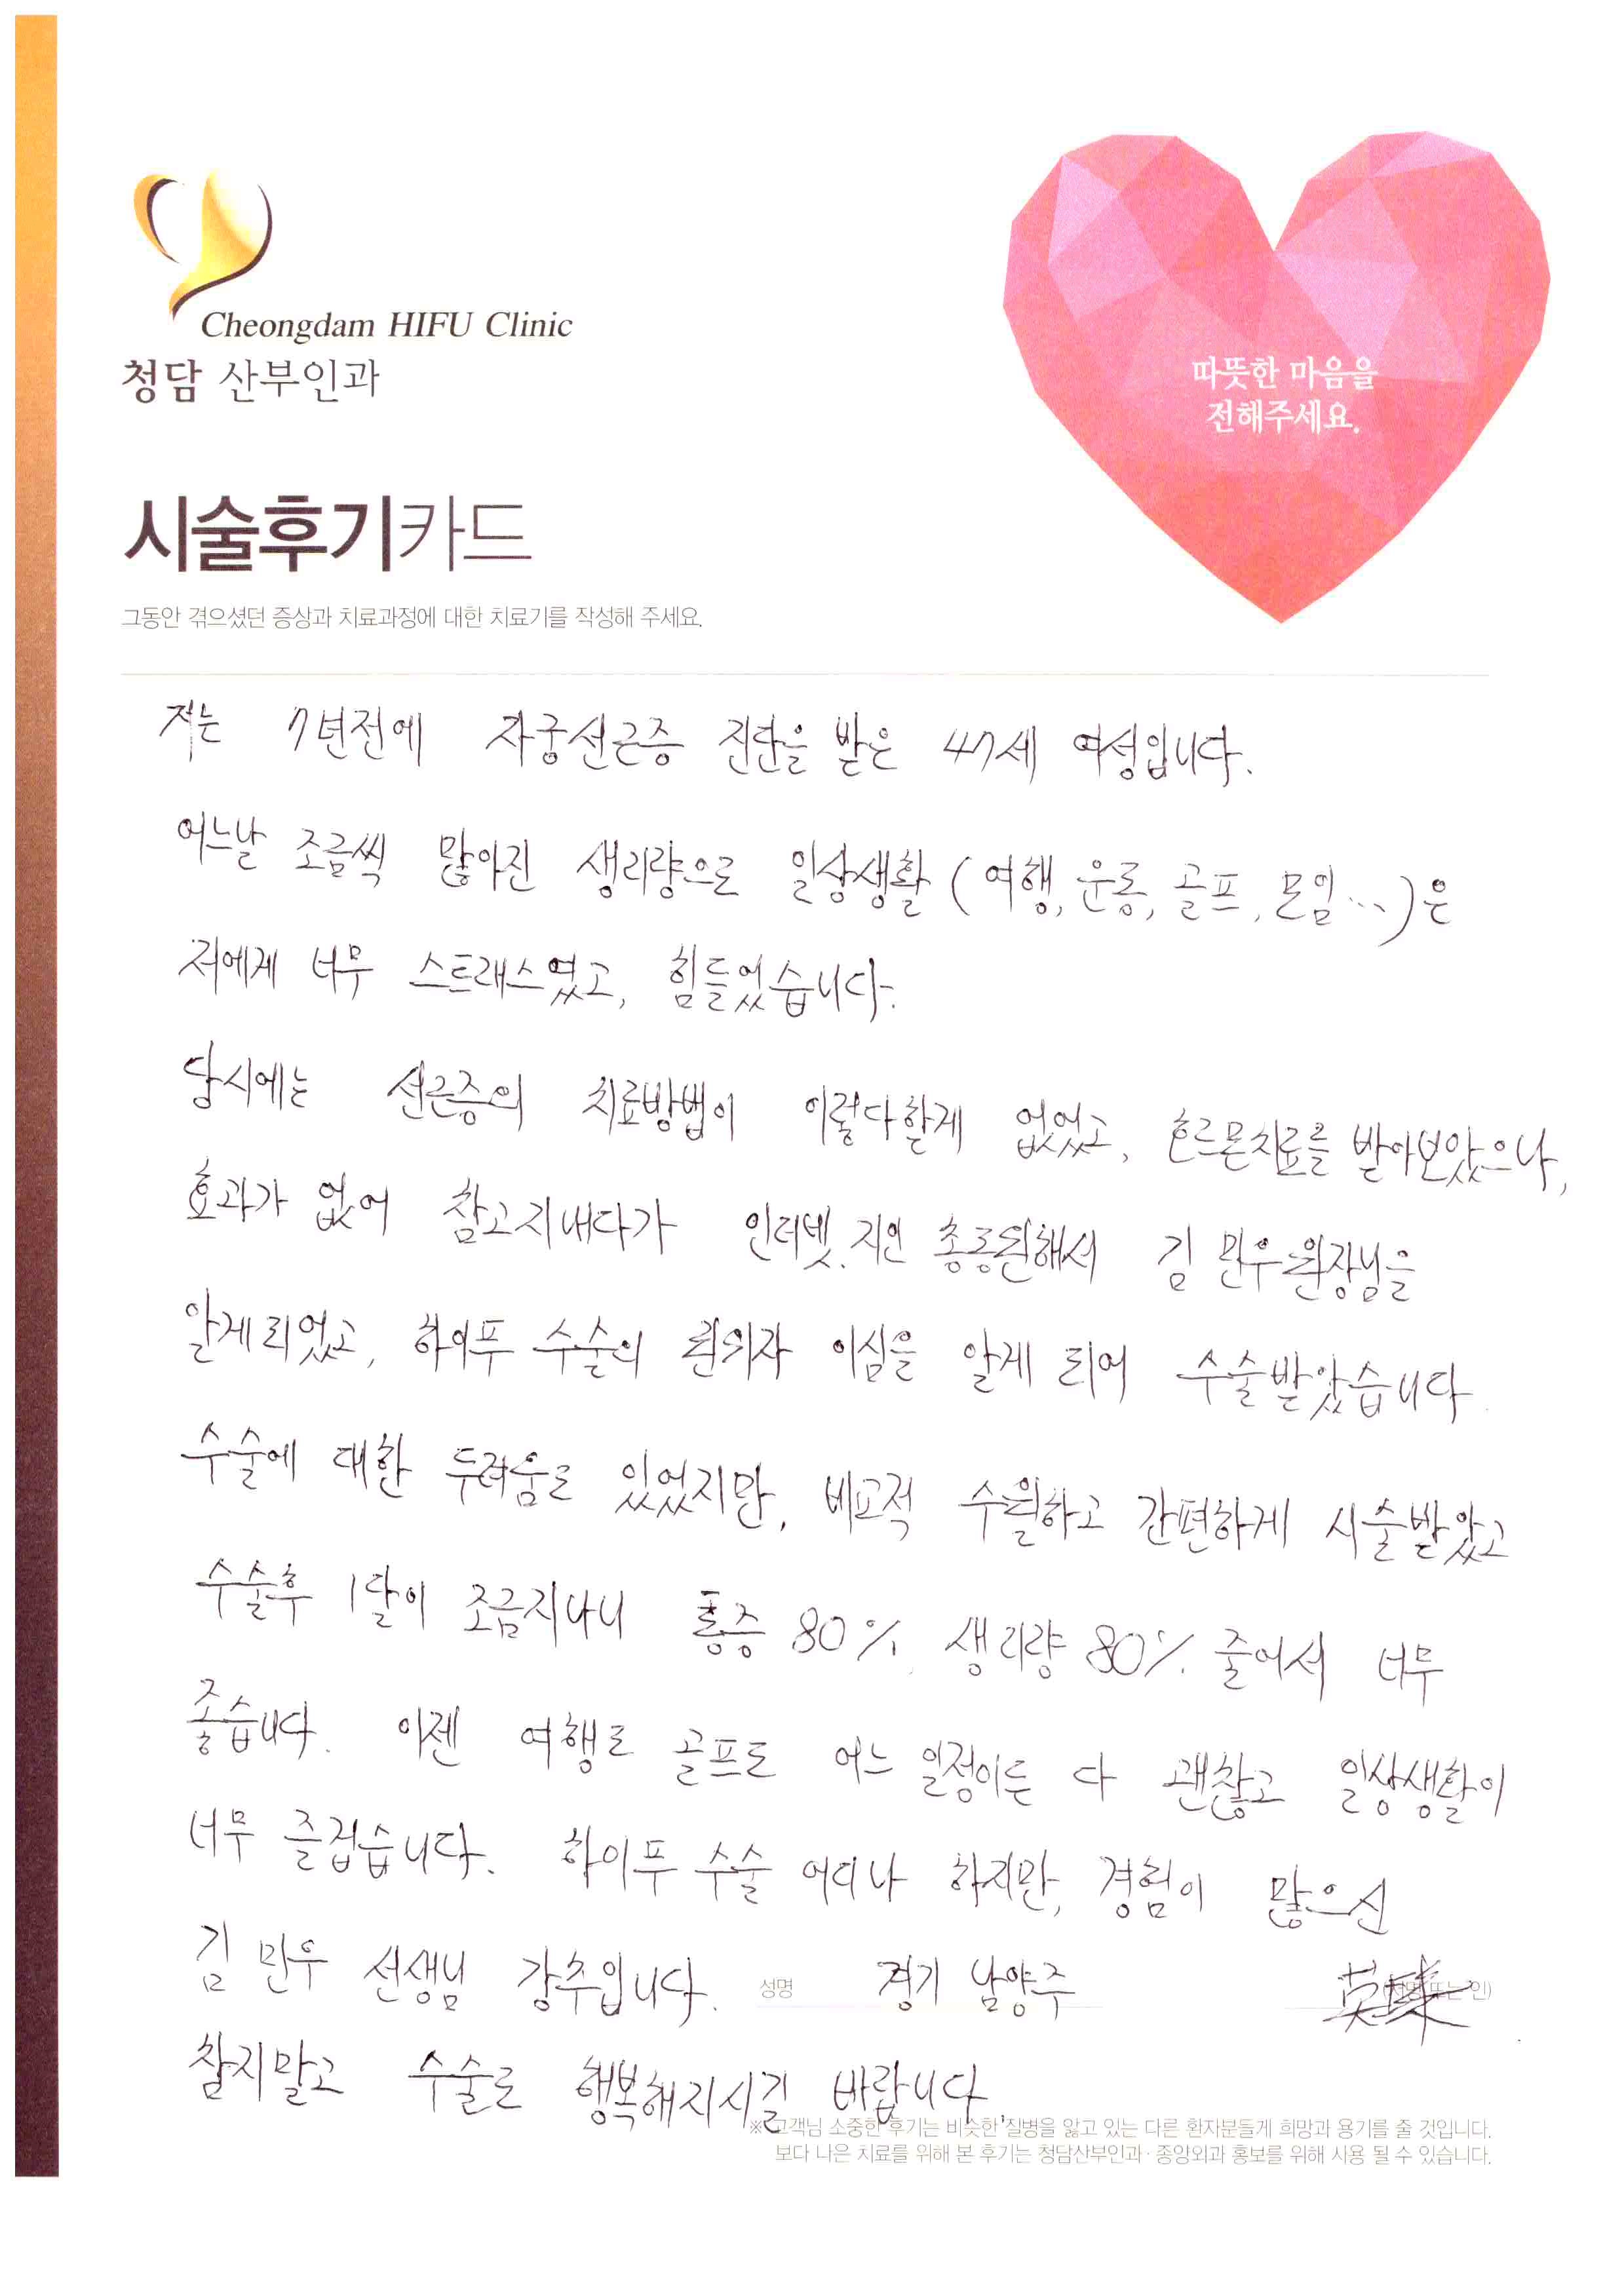 Cheongdam HIFU Clinic
청담 산부인과
따뜻한 마음을
전해주세요.
시술후기카드
그동안 겪으셨던 증상과 치료과정에 대한 치료기를 작성해 주세요.
저는 7년전에 자궁선근증 진단을 받은 47세 여성입니다.
어느날 조금씩 많아진 생리량으로 일상생활 (여행, 운동, 골프, 모임...)은
저에게 너무 스트래스였고, 힘들었습니다.
당시에는 선근증의 치료방법이 이렇다할게 없었고, 호르몬치료를 받아보았으나,
효과가 없어 참고지내다가 인터넷.지인 총동원해서 김민우원장님을
알게되었고, 하이푸 수술의 권위자 이심을 알게 되어 수술받았습니다.
수술에 대한 두려움도 있었지만, 비교적 수월하고 간편하게 시술받았고
수술후 1달이 조금지나니 통증 80%, 생리량 80% 줄어서 너무
좋습니다. 이젠 여행도 골프도 어느 일정이든 다 괜찮고 일상생활이
너무 즐겁습니다. 하이푸 수술 어디나 하지만, 경험이 많으신
김민우 선생님 강추입니다. 성명 경기 남양주
참지말고 수술로 행복해지시길 바랍니다.
※ 고객님 소중한 후기는 비슷한 질병을 앓고 있는 다른 환자분들게 희망과 용기를 줄 것입니다.
보다 나은 치료를 위해 본 후기는 청담산부인과·종앙외과 홍보를 위해 사용 될 수 있습니다.